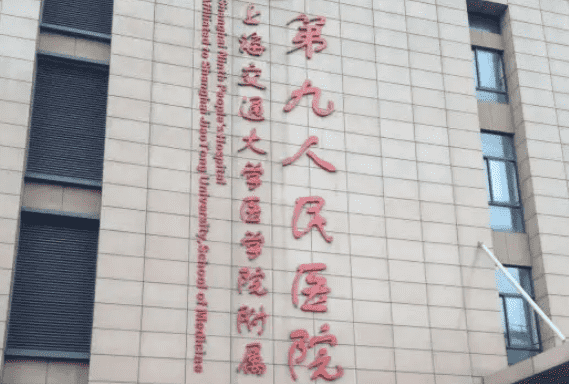 第九人民医院
上海交通大学医学院附属
Shanghai Ninth People's Hospital
Affiliated to Shanghai JiaoTong University, School of Medicine